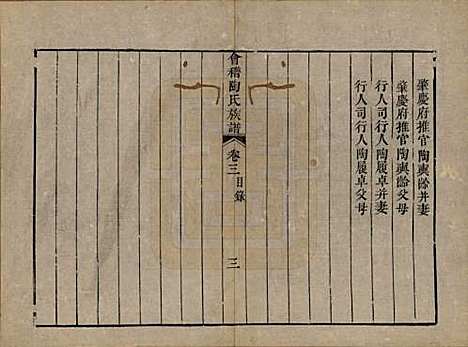 肇慶府推官陶輿齡并妻
肇慶府推官陶輿齡父母
行人司行人陶履卓并妻
行人司行人陶履卓父母
會稽陶氏族譜
卷三目錄
三